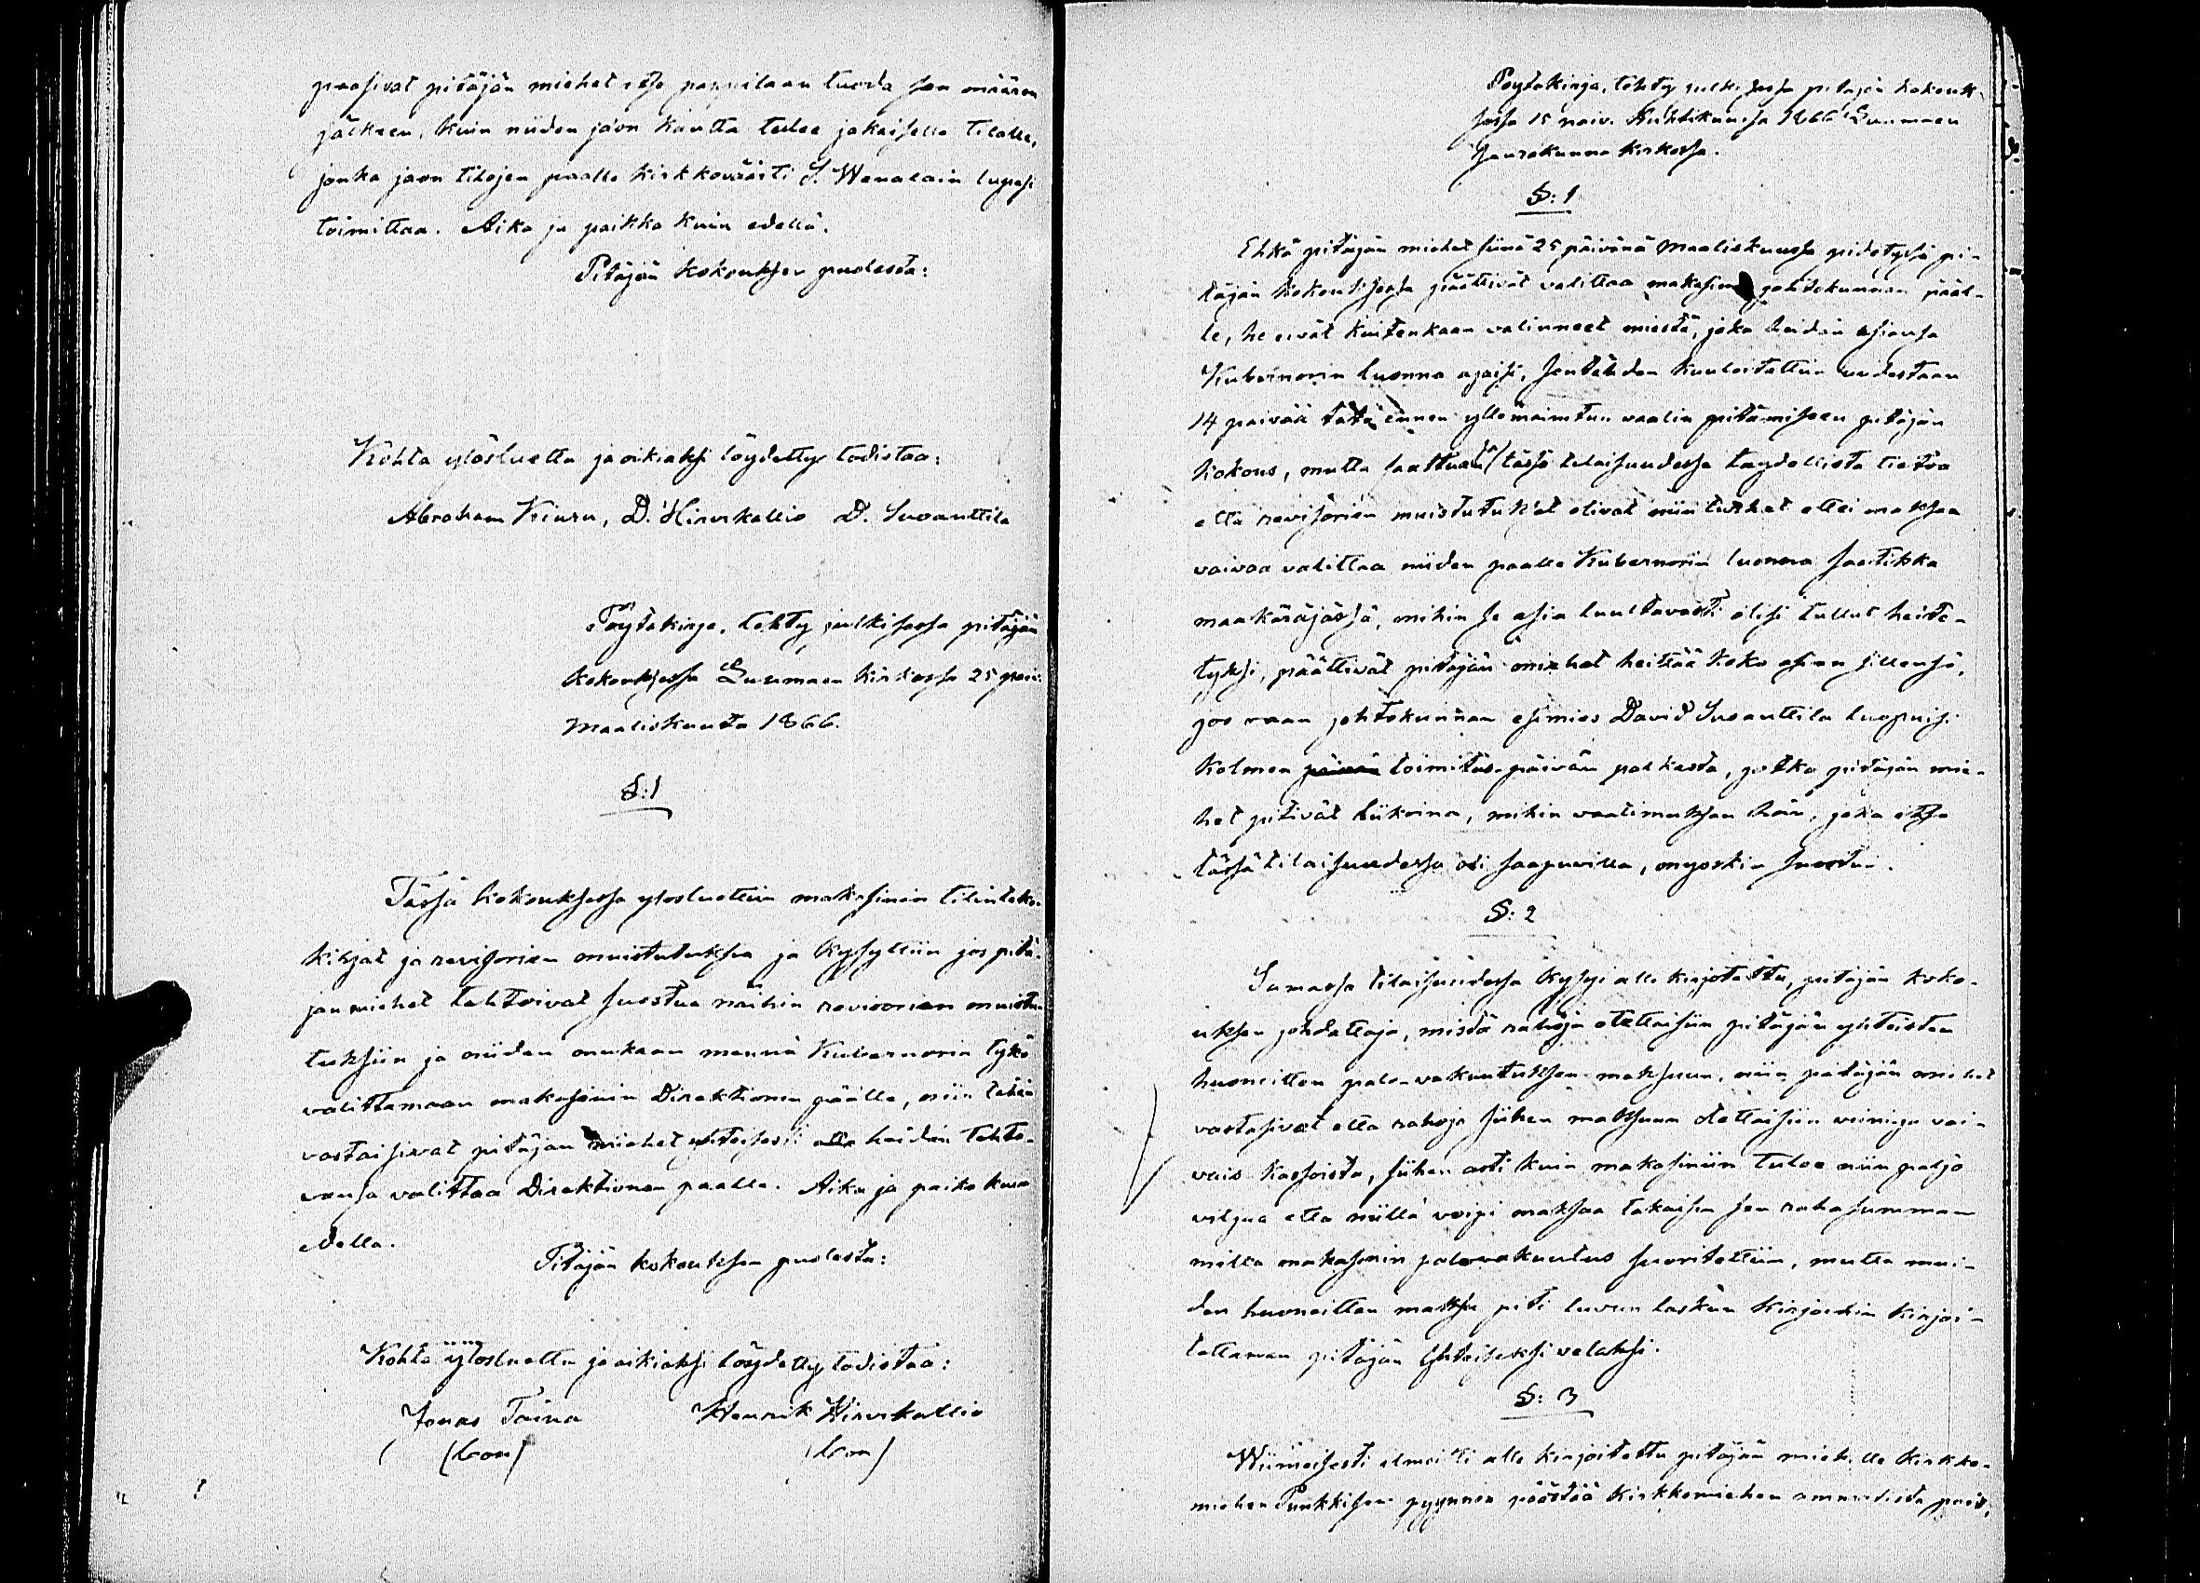 paasivat pitäjän miehet itse pappilaan tuoda sen määrän
jälkeen, kuin niiden jaon kautta tulee jokaiselle tilalle,
jonka jaon tilojen paalle kirkkoväärti S. Wenalain lupasi
toimittaa. Aika ja paikka kuin edellä.
Pitäjän kokouksen puolesta:
Kohta ylösluettu ja oikiaksi löydetty todistaa:
Abraham Kiuru, D. Hirvikallio D. Suoanttila
Pöytäkirja, tehty julkisessa pitäjän
kokouksessa Luumäen kirkossa 25 paiv.
Maaliskuuta 1866.
§:1
Tässä kokouksessa ylosluettiin makasinin tilinteko-
kirjat ja revisorien muistutuksia ja kysyttiin jos pitä-
jän miehet tahtoivat suostua näihin revisorien muistu-
tuksiin ja niiden mukaan mennä Kubernorin tykö
valittamaan makasinin Direktionin päälle, niin tähän
vastaisivat pitäjän miehet yhteisesti alla heidän tahto-
vansa valittaa Direktionen paalle. Aika ja paika kuin
edella.
Pitäjän kokouksen puolesta:
Kohta ylosluettu ja oikiaksi löydetty todistaa:
Jonas Taina Henrik Hirvikallio
(bom) (bom)
Poytakirja, tehty julkisessa pitäjän kokouk-
sessa 15 paiv. Huhtikuussa 1866 Luumäen
Seurakunna kirkossa.
§: 1
Ehkä pitäjän miehet siinä 25 päivänä Maaliskuussa pidetyssä pi-
täjän kokouksessa päättivät valittaa makasini johtokunnan pääl-
le, he eivät kuitenkaan valinneet miestä, joka heidän asiansa
Kubernorin luonna ajaisi, sentähden kuuloitettiin uudestaan
14 paivää tätä ennen yllämainitun vaalin pitämiseen pitäjän
kokous, mutta saattuansa tässä tilaisuudessa taydellistä tietoa
että revisorien muistutukset olivat niin turhat ettei maksaa
vaivaa valittaa niiden paalle Kubernorin luonna saatikka
maakäräjässä, mihin se asia luultavasti olisi tullut heite-
tyksi, päättivät pitäjän miehet heittää koko asian sillensä,
jos vaan johtokunnan esimies David Suoanttila luopuisi
kolmen päivän toimitus-päivän palkasta, jotka pitäjän mie-
het pitivät liikoina, mihin vaatimuksen hän, joka itse
tässä tilaisuudessa oli saapuvilla, myöskin suostui.
§: 2
Samassa tilaisuudessa kysyi alle kirjotettu, pitäjän koko-
uksen johdattaja, mistä rahoja otettaisiin pitäjän yhteisten
huoneitten palo-vakuutuksen maksuun, niin pitäjän miehet
vastasivat että rahoja siihen maksuun otettaisiin viinigu vai-
vais kassoista, siihen asti kuin makasiniin tulee niin paljo
viljaa että niillä voipi maksaa takaisin sen raha summan
millä makasinin palovakuutus suoritettiin, mutta mui-
den huoneitten maksu piti luvun laskun kirjoihin kirjoi-
tettaman pitäjän yhteiseksi velaksi.
§: 3
Wiimeisesti ilmoitti alle kirjoitettu pitäjän miehille kirkko-
miehen Punkkisen pyynnön päästää kirkkomiehen ammatista pois,